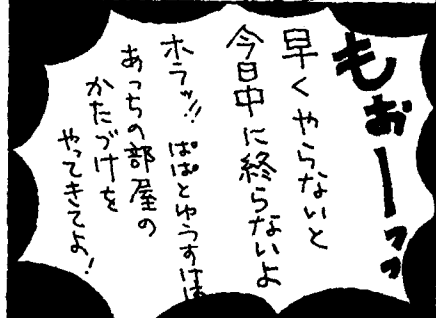 もぉーっっ
早くやらないと
今日中に終らないよ
ホラッ!! ぱぱとゆうすけは
あっちの部屋の
かたづけを
やってきてよ!